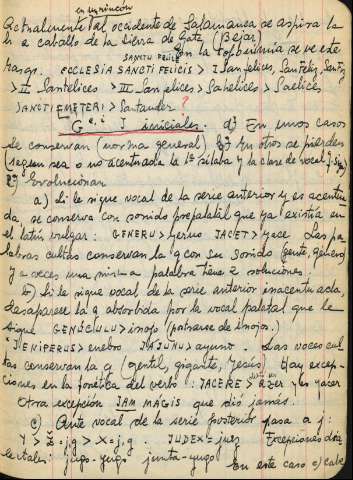 en un rincón
Actualmente al occidente de Salamanca se aspira la
h a caballo de la Sierra de Gata (Bejar)
SANCTU FELICE
En la toponimia se ve este
rasgo. ECCLESIA SANCTI FELICIS > I Sanfelices, Sanfeliz,
> II Santelices > III Sanelices > Sahelices > Saelices,
SANCTI EMETERI > Santander ?
G e,i J iniciales. a) En unos casos
se conservan (norma general) b) En otros se pierden
(segun sea o no acentuada la 1ª silaba y la clase de vocal j. sig.)
Evolucionan
a) Si le sigue vocal de la serie anterior y es acentua
da se conserva con sonido prepalatal que ya existia en
el latin vulgar: GENERU > yerno JACET > yace. Las pa-
labras cultas conservan la g con su sonido (gente, genero)
y a veces una misma palabra tiene 2 soluciones.
b) Si le sigue vocal de la serie anterior inacentuada,
desaparece la g absorbida por la vocal palatal que le
sigue GENUCULU > inojo (postrarse de inojos.)
JENIPERUS > enebro JAJUNU > ayuno. Las voces cul
tas conservan la g (gentil, gigante, Jesús) Hay excep-
ciones en la fonetica del verbo: JACERE > yacer
Otra excepción JAM MAGIS que dió jamás.
c) Ante vocal de la serie posterior pasa a j:
Y > ž = j,g > X = j,g. JUDEX = juez Excepciones dia
lectales: jugo-yugo junta-yugo
En este caso c) cabe